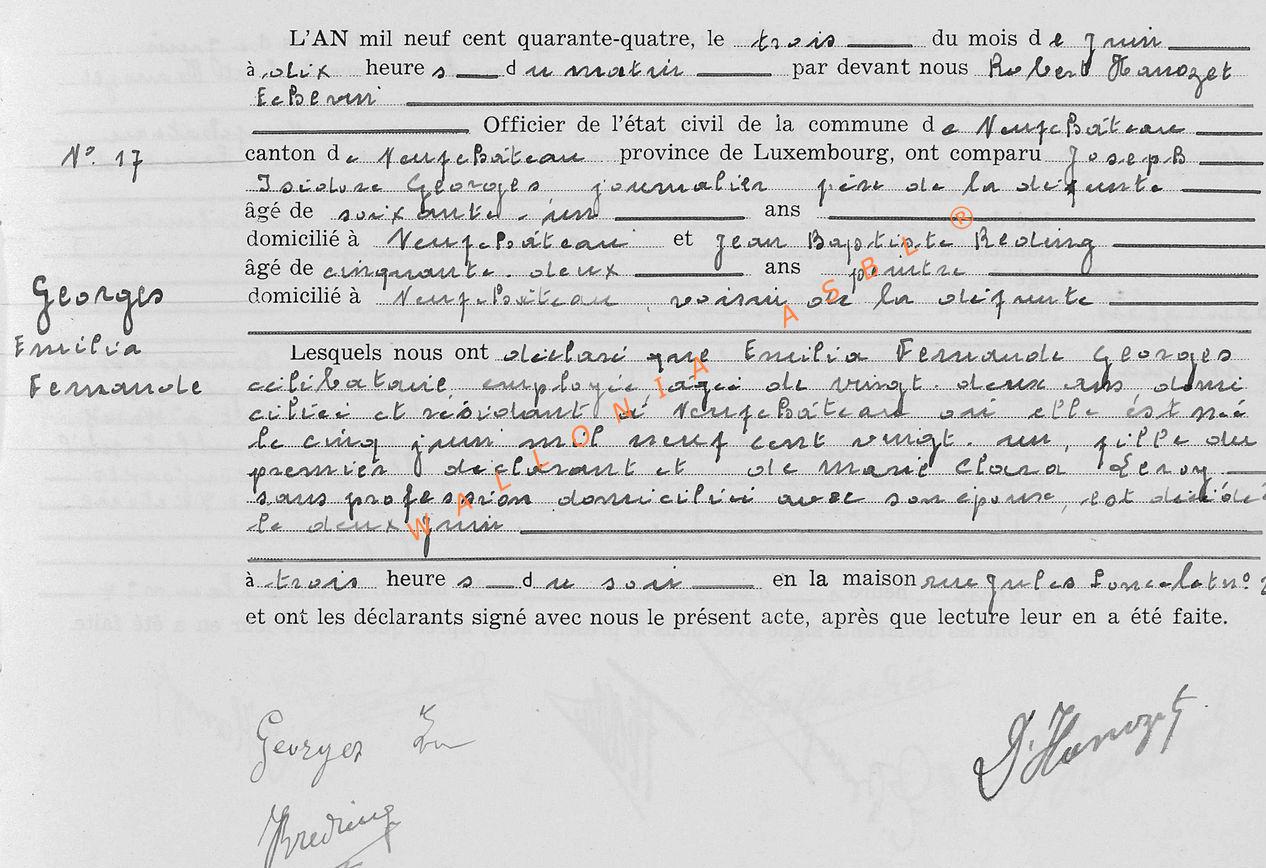 L'AN mil neuf cent quarante-quatre, le trois du mois de Juin
à dix heures du matin par devant nous Robert Hanozet
Echevin
Officier de l'état civil de la commune de Neufchâteau
N° 17
canton de Neufchâteau province de Luxembourg, ont comparu Joseph
Isidore Georges journalier père de la défunte
âgé de soixante-un ans
domicilié à Neufchâteau et Jean Baptiste Reding
âgé de cinquante-deux ans peintre
domicilié à Neufchâteau, voisin de la défunte
Georges
Emilia
Fernande
Lesquels nous ont déclaré que Emilia Fernande Georges
célibataire, employée âgée de vingt-deux ans domi
ciliée et résidant à Neufchâteau où elle est née
le cinq juin mil neuf cent vingt-un, fille du
premier déclarant et de Marie Clara Leroy
sans profession domiciliée avec son époux, est décédée
le deux juin
à trois heures du soir en la maison rue Jules Poncelet n° 2
et ont les déclarants signé avec nous le présent acte, après que lecture leur en a été faite.
Georges
Hanozet
JBReding
WALLONIA ASBL ®